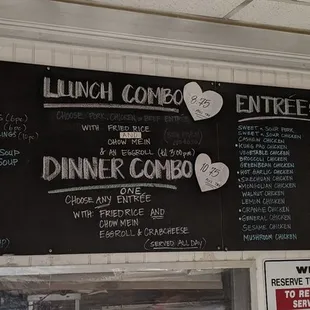 (6 pc)
(6 pc)
(6 pc)
SOUP
SOUP
LUNCH COMBO
8.75
CHOOSE PORK, CHICKEN OR BEEF ENTRÉE
WITH FRIED RICE
AND
CHOW MEIN
& AN EGGROLL (til 3:00pm)
DINNER COMBO
10.25
ONE
CHOOSE ANY ENTRÉE
WITH: FRIED RICE AND
CHOW MEIN
EGGROLL & CRABCHEESE
(SERVED ALL DAY)
ENTRÉES
SWEET & SOUR PORK
SWEET & SOUR CHICKEN
KUNG PAO CHICKEN
VEGETABLE CHICKEN
BROCCOLI CHICKEN
GREENBEAN CHICKEN
HOT GARLIC CHICKEN
SZECHUAN CHICKEN
MONGOLIAN CHICKEN
WALNUT CHICKEN
LEMON CHICKEN
ORANGE CHICKEN
GENERAL CHICKEN
SESAME CHICKEN
MUSHROOM CHICKEN
RESERVE T
TO RE
SERV